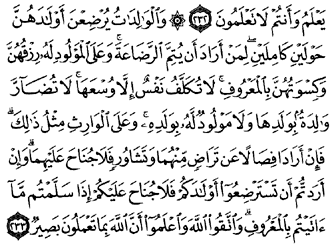 يَعْلَمُ وَأَنتُمْ لَا تَعْلَمُونَ ٢٣٢ ۞ وَٱلْوَٰلِدَٰتُ يُرْضِعْنَ أَوْلَٰدَهُنَّ
حَوْلَيْنِ كَامِلَيْنِ ۖ لِمَنْ أَرَادَ أَن يُتِمَّ ٱلرَّضَاعَةَ ۚ وَعَلَى ٱلْمَوْلُودِ لَهُۥ رِزْقُهُنَّ
وَكِسْوَتُهُنَّ بِٱلْمَعْرُوفِ ۚ لَا تُكَلَّفُ نَفْسٌ إِلَّا وُسْعَهَا ۚ لَا تُضَآرَّ
وَٰلِدَةٌۢ بِوَلَدِهَا وَلَا مَوْلُودٌ لَّهُۥ بِوَلَدِهِۦ ۚ وَعَلَى ٱلْوَارِثِ مِثْلُ ذَٰلِكَ ۗ
فَإِنْ أَرَادَا فِصَالًا عَن تَرَاضٍ مِّنْهُمَا وَتَشَاوُرٍ فَلَا جُنَاحَ عَلَيْهِمَا ۗ وَإِنْ
أَرَدتُّمْ أَن تَسْتَرْضِعُوٓا۟ أَوْلَٰدَكُمْ فَلَا جُنَاحَ عَلَيْكُمْ إِذَا سَلَّمْتُم مَّآ
ءَاتَيْتُم بِٱلْمَعْرُوفِ ۗ وَٱتَّقُوا۟ ٱللَّهَ وَٱعْلَمُوٓا۟ أَنَّ ٱللَّهَ بِمَا تَعْمَلُونَ بَصِيرٌ ٢٣٣